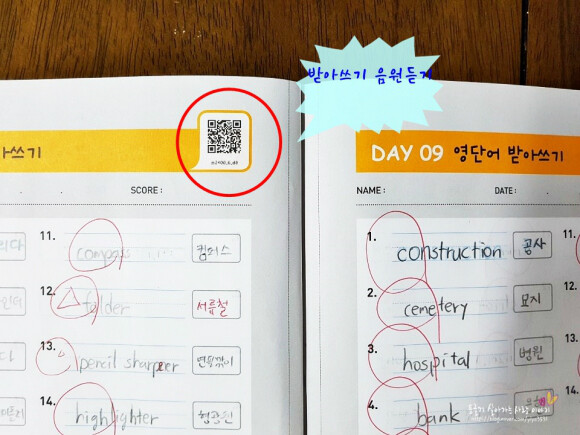 받아쓰기 음원듣기
아쓰기
SCORE :
11. compass 컴퍼스
12. folder 서류철
13. pencil sharpener 연필깎이
14. highlighter 형광펜
DAY 09 영단어 받아쓰기
NAME : DATE :
1. construction 공사
2. cemetery 묘지
3. hospital 병원
4. bank
11.
12
13
14